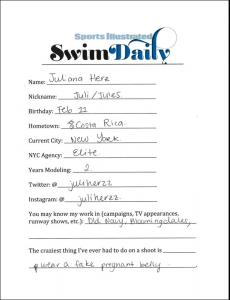 Sports Illustrated
Swim Daily
Name: Juliana Herz
Nickname: Juli / Jules
Birthday: Feb 22
Hometown: Costa Rica
Current City: New York
NYC Agency: Elite
Years Modeling: 2
Twitter: @ juliherzz
Instagram: @ juliherzz
You may know my work in (campaigns, TV appearances,
runway shows, etc.): Old Navy, Bloomingdales,
The craziest thing I've ever had to do on a shoot is
wear a fake pregnant belly